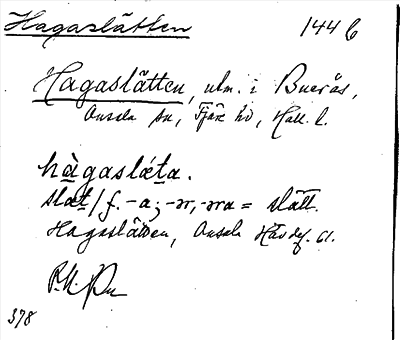 Hagaslätten 144 b
Hagaslätten, utm. i Buerås,
Onsala sn, Fjäre hd, Hall. l.
hàgaslǽta.
slæt/f. -a; -ər, -əra = slätt.
Hagaslätten, Onsala Häv def. 61.
378